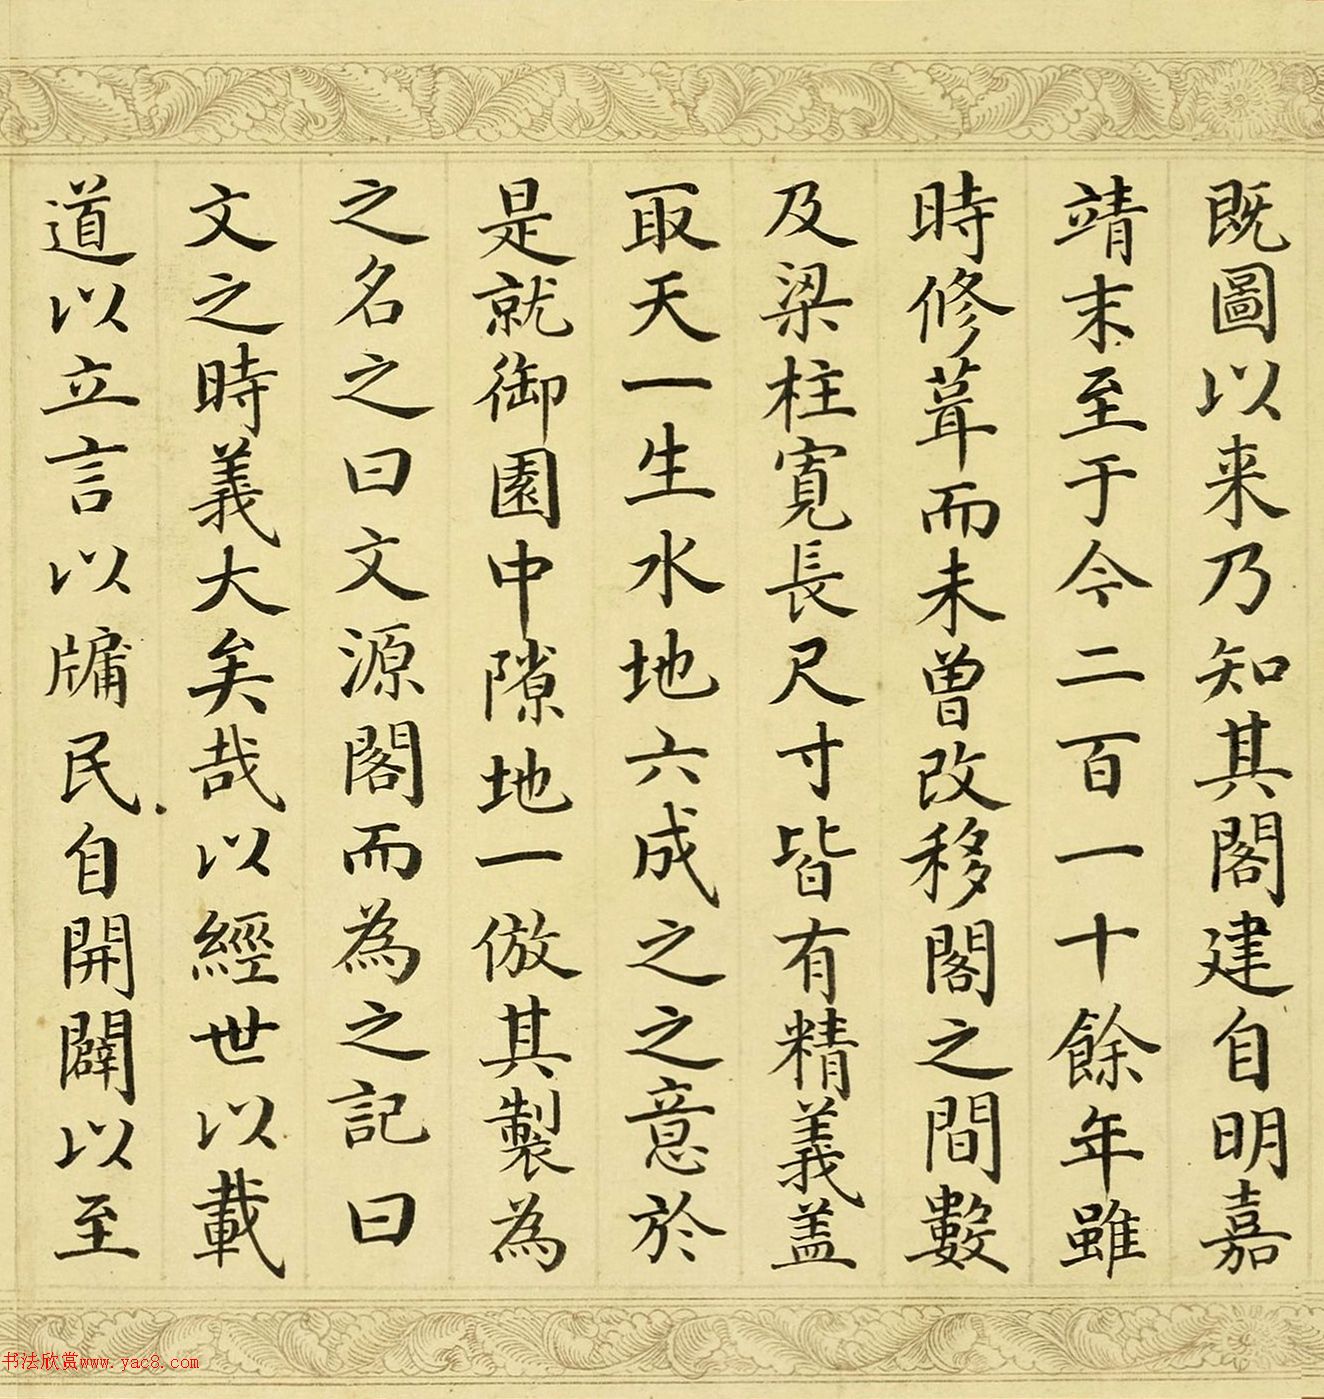 既圖以来乃知其閣建自明嘉
靖末至于今二百一十餘年雖
時修葺而未曾改移閣之間數
及梁柱寬長尺寸皆有精義盖
取天一生水地六成之之意於
是就御園中隙地一倣其製為
之名之曰文源閣而為之記曰
文之時義大矣哉以經世以載
道以立言以牖民自開闢以至
书法欣赏www.yac8.com